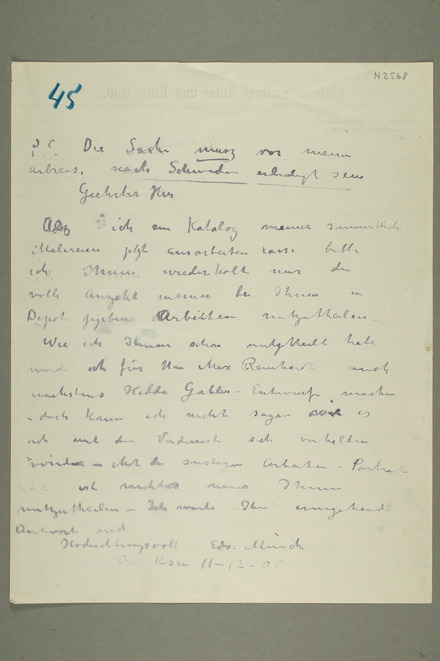 N 2568
45
P.S. Die Sache muss vor meiner
abreis. nach Schweden erledigt sein
Geehrter Herr
Als ich ein Katalog meiner
Malereien jetzt ausarbeiten lasse bitte
ich Ihnen wiederholt mir die
volle Anzahl meiner bei Ihnen in
Depot Arbeiten mitzutheilen –
Wie ich Ihnen schon mitgetheilt habe
werde ich für Max Reinhardt auch
nächstens Hedda Gabler – Entwürfe machen
– doch kann ich nicht sagen es
sich mit dem Verdienst sich verhalten
– Arbeiten – Porträt
ist nichts neues Ihnen
mitzutheilen – Ich warte Ihre umgehend
Antwort und
Hochachtungsvoll Edv. Munch
Kösen 11–12–05